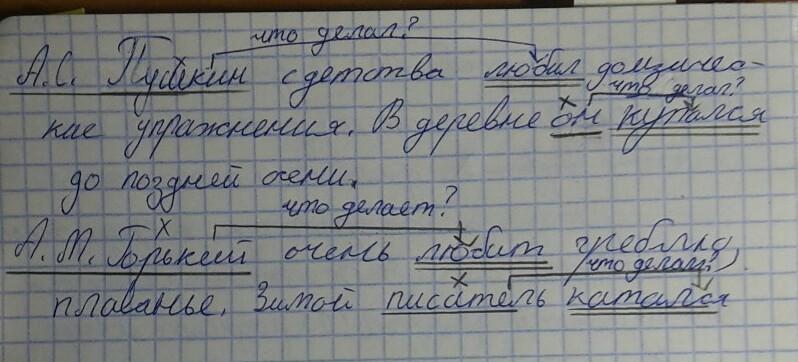 что делал?
А.С. Пушкин с детства любил домзичес-
что делал?
кие упражнения. В деревне он купался
до поздней осени.
что делает?
А.М. Горький очень любит греблю,
что делал?
плаванье. Зимой писатель катался